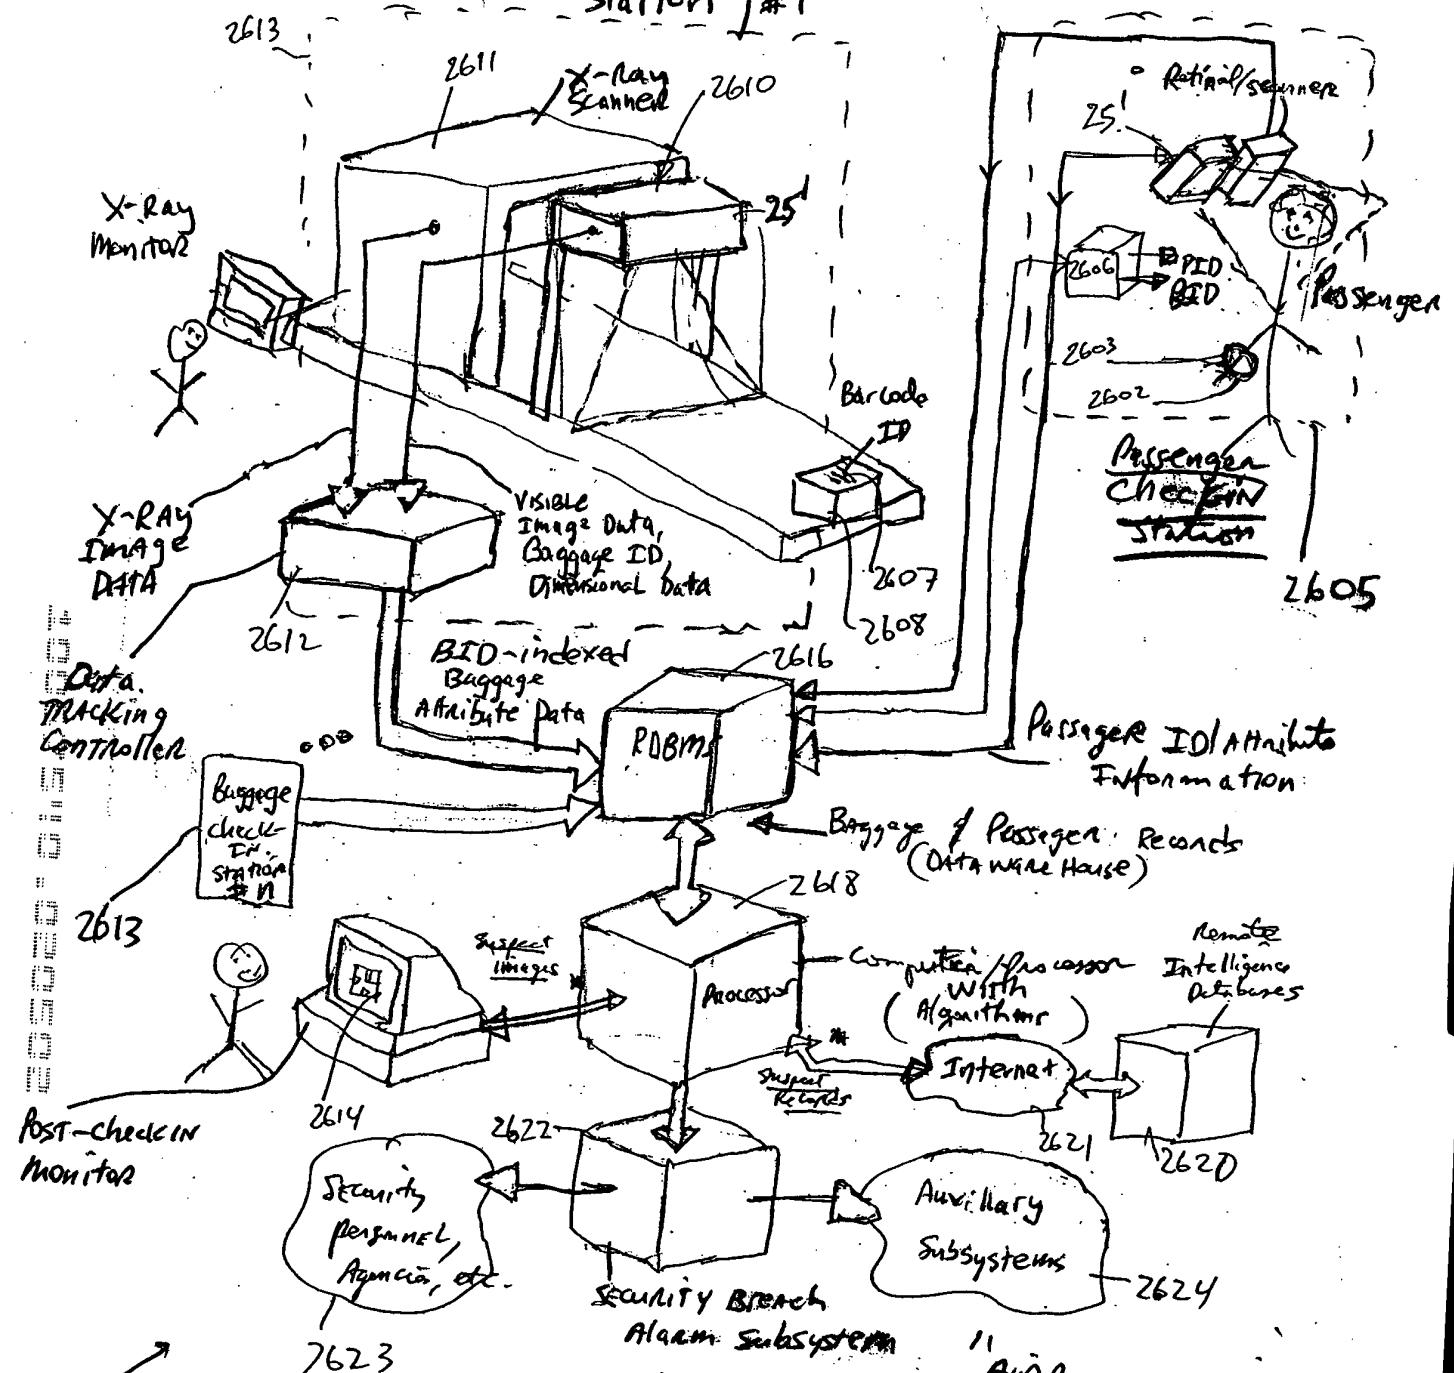 Station #1
2613
2611
X-Ray
Scanner
2610
Retinal/scanner
25'
25'
X-Ray
Monitor
2606
PID
BID
Passenger
2603
2602
Barcode
ID
Passenger
CheckIN
Station
2605
X-RAY
IMAGE
DATA
VISIBLE
Image Data,
Baggage ID,
Dimensional Data
2607
2608
2612
BID-indexed
Baggage
Attribute Data
2616
Data
TRACKing
Controller
RDBMS
Passager ID/Attribute
Information
Baggage
check-
IN.
station
# n
2613
Baggage & Passager Records
(DATA WARE House)
2618
Suspect
Images
Processor
Computer/Processor
With
(Algorithms)
Remote
Intelligence
Databases
Internet
Suspect
Records
2614
2622
2621
2620
Post-CheckIN
Monitor
Security
personnel,
Agencies, etc.
Auxillary
Subsystems
2624
Security Breach
Alarm Subsystem
2623